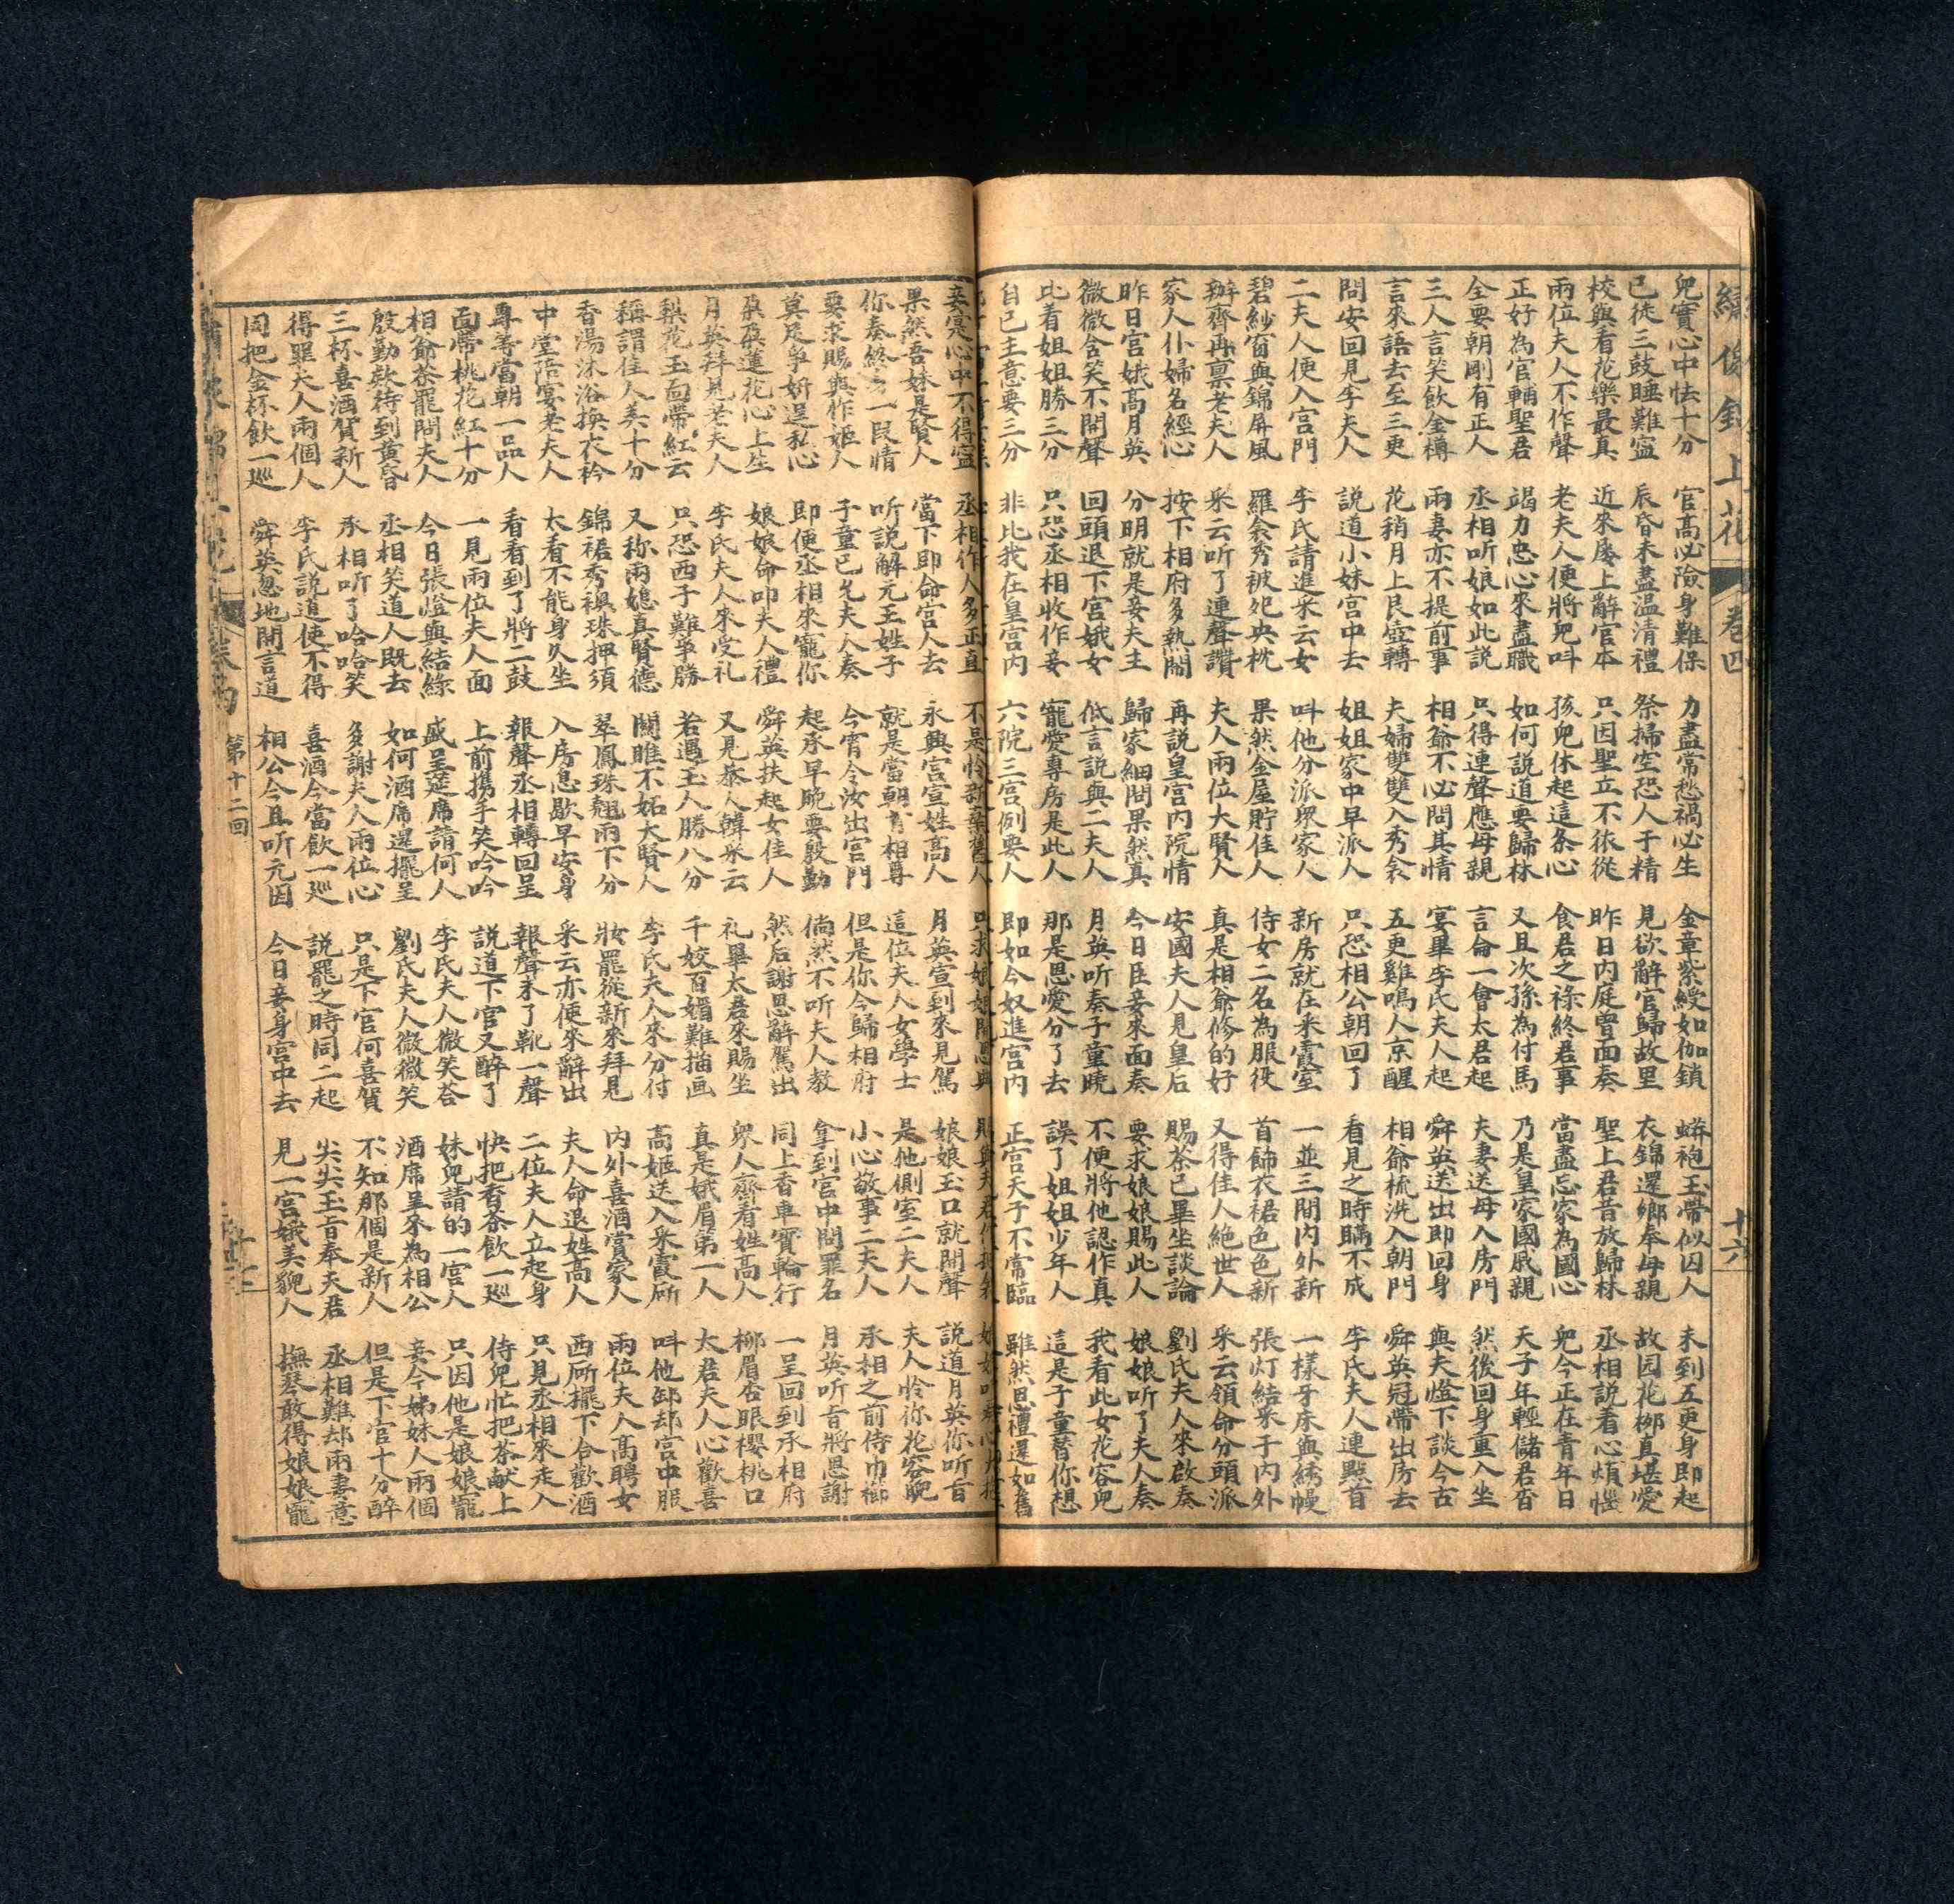 繡像錦上花 卷四 十六
兒實心中怯十分 官高必險身難保 力盡常愁禍必生 金章紫綬如伽鎖 蟒袍玉帶似囚人 未到五更身即起
已從三鼓睡難寍 辰昏未盡温清禮 祭掃空恐人于精 見欲辭官歸故里 衣錦還鄉奉母親 故园花栁真堪愛
校與看花樂最真 近來屡上辭官本 只因聖立不依從 昨日内庭曾面奏 聖上君音放歸林 丞相説着心煩惱
兩位夫人不作聲 老夫人便將児呌 孩兒休起這条心 食君之祿終君事 當盡忘家為國心 兒今正在青年日
正好為官輔聖君 竭力忠心來盡職 如何説道要歸林 又且次孫為付馬 乃是皇家國戚親 天子年輕儲君杳
全要朝剛有正人 丞相听娘如此説 只得連聲應母親 言侖一會太君起 夫妻送母入房門 然後回身重入坐
三人言笑飲金樽 兩妻亦不提前事 相爺不必問其情 宴畢李氏夫人起 舜英送出即回身 與夫燈下談今古
言來語去至三更 花稍月上良壺轉 夫婦雙雙入秀衾 五更雞鳴人京醒 相爺梳洗入朝門 舜英冠帶出房去
問安回見李夫人 説道小妹宫中去 姐姐家中早派人 只恐相公朝回了 看見之時瞞不成 李氏夫人連點首
二夫人便入宫門 李氏請進采云女 呌他分派衆家人 新房就在采霞室 一並三間内外新 一樣牙床與綉幔
碧紗窗與錦屏風 羅衾秀被妃央枕 果然金屋貯佳人 侍女二名為服役 首飾衣裙色色新 張灯結采于内外
辦齊再禀老夫人 采云听了連聲讚 夫人兩位大賢人 真是相爺修的好 又得佳人絶世人 采云領命分頭派
家人仆婦名經心 按下相府多熱鬧 再説皇宫内院情 安國夫人見皇后 賜茶已畢坐談論 劉氏夫人來啟奏
昨日宫娥高月英 分明就是妾夫主 歸家細問果然真 今日臣妾來面奏 要求娘娘賜此人 娘娘听了夫人奏
微微含笑不開聲 回頭退下宫娥女 低言説與二夫人 月英听奏子童曉 不便將他認作真 我看此女花容兒
比着姐姐勝三分 只恐丞相收作妾 寵愛專房是此人 那是恩愛分了去 誤了姐姐少年人 這是子童替你想
自已主意要三分 非比我在皇宫内 六院三宫例要人 即如今奴進宫内 正宫天子不常臨 雖然恩禮還如舊
妾寔心中不得寍 丞相作人多正直 不是怜新棄舊人 只求娘娘開恩典
果然吾妹是賢人 當下即命宫人去 永興宫宣姓高人 月英宣到來見駕 娘娘玉口就開聲 説道月英你听旨
你奏終身一段情 听説解元王姓子 就是當朝首相尊 這位夫人女學士 是他側室二夫人 夫人怜你花容貌
要求賜與作姬人 子童已允夫人奏 今宵令汝出宫門 但是你今歸相府 小心敬事二夫人 丞相之前侍巾櫛
莫足爭妍逞私心 即便丞相來寵你 起承早晚要殷勤 倘然不听夫人教 拿到宫中問罪名 月英听旨將恩謝
朶朶蓮花心上生 娘娘命叩夫人禮 舜英扶起女佳人 然后謝恩辭駕出 同上香車寶輪行 一呈回到承相府
月英拜見老夫人 李氏夫人來受礼 又見恭人韓采云 礼畢太君來賜坐 衆人齊看姓高人 柳眉杏眼櫻桃口
梨花玉面帶紅云 只恐西子難爭勝 若遇王人勝八分 千姣百媚難描画 真是娥眉第一人 大君夫人心歡喜
稱謂佳人美十分 又称兩媳真賢德 関睢不妬大賢人 李氏夫人來分付 高姬送入采霞廂 呌他卸却宫中服
香湯沐浴換衣衿 錦裙秀襖珠押須 翠鳳珠翹兩下分 妝罷從新來拜見 内外喜酒賞家人 兩位夫人高聘女
中堂陪宴老夫人 太看不能身久坐 入房息歇早安身 采云亦便來辭出 夫人命退姓高人 西廂擺下合歡酒
專等當朝一品人 看看到了將二鼓 報聲丞相轉回呈 報聲未了靴一聲 二位夫人立起身 只見丞相來走入
面帶桃花紅十分 一見兩位夫人面 上前携手笑吟吟 説道下官又醉了 快把香茶飲一巡 侍兒忙把茶献上
相爺茶罷問夫人 今日張燈與結綵 盛呈筵席請何人 李氏夫人微笑荅 妹兒請的一宫人 只因他是娘娘寵
殷勤欵待到黄昏 丞相笑道人既去 如何酒席還擺呈 劉氏夫人微微笑 酒席呈來為相公 妾今姊妹人兩個
三杯喜酒賀新人 承相听了哈哈笑 多謝夫人兩位心 只是下官何喜賀 不知那個是新人 但是下官十分醉
得罪夫人兩個人 李氏説道使不得 喜酒今當飲一巡 説罷之時同二起 尖尖玉旨奉夫君 丞相難却兩妻意
同把金杯飲一巡 舜英忽地開言道 相公今且听元因 今日妾身宫中去 見一宫娥美貌人 撫琴敢得娘娘寵
第十二回